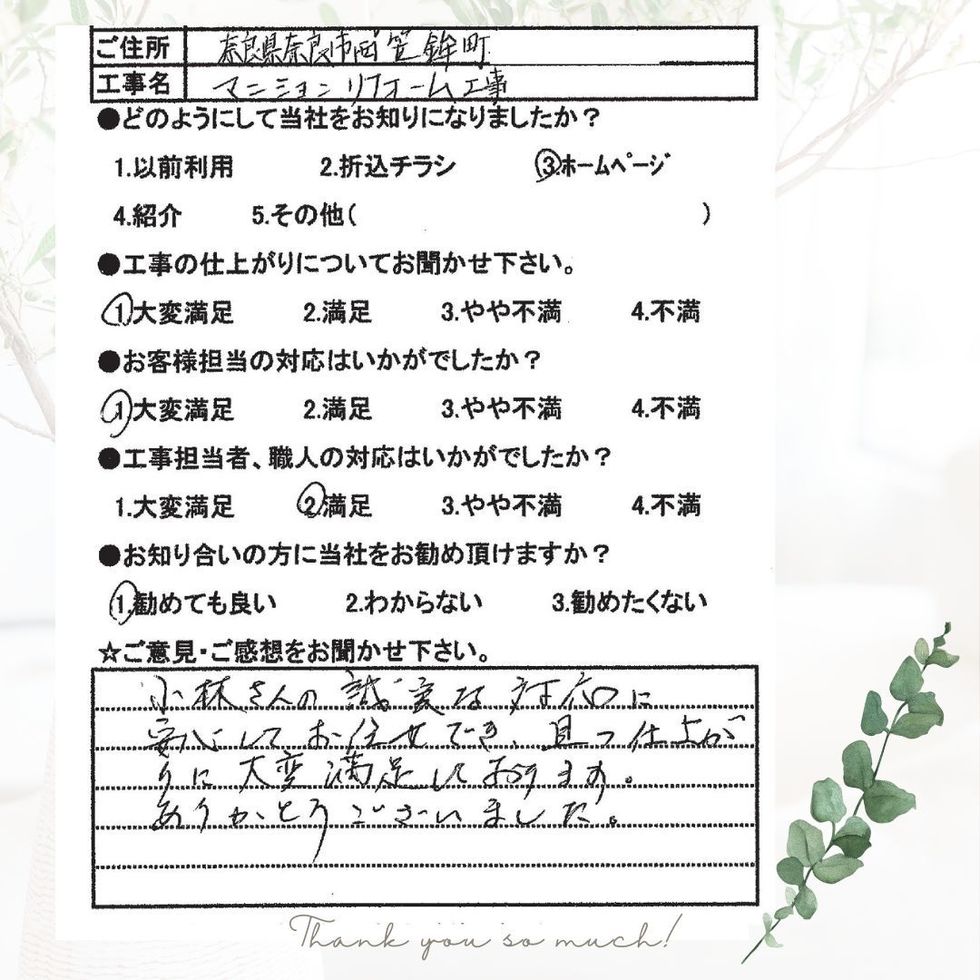 ご住所 奈良県奈良市西笠鉾町
工事名 マンションリフォーム工事
●どのようにして当社をお知りになりましたか？
1.以前利用 2.折込チラシ 3.ホームページ
4.紹介 5.その他( )
●工事の仕上がりについてお聞かせ下さい。
1.大変満足 2.満足 3.やや不満 4.不満
●お客様担当の対応はいかがでしたか？
1.大変満足 2.満足 3.やや不満 4.不満
●工事担当者、職人の対応はいかがでしたか？
1.大変満足 2.満足 3.やや不満 4.不満
●お知り合いの方に当社をお勧め頂けますか？
1.勧めても良い 2.わからない 3.勧めたくない
☆ご意見・ご感想をお聞かせ下さい。
小林さんの誠実な対応に
安心してお任せでき、且つ仕上が
りに大変満足しております。
ありがとうございました。
Thank you so much!